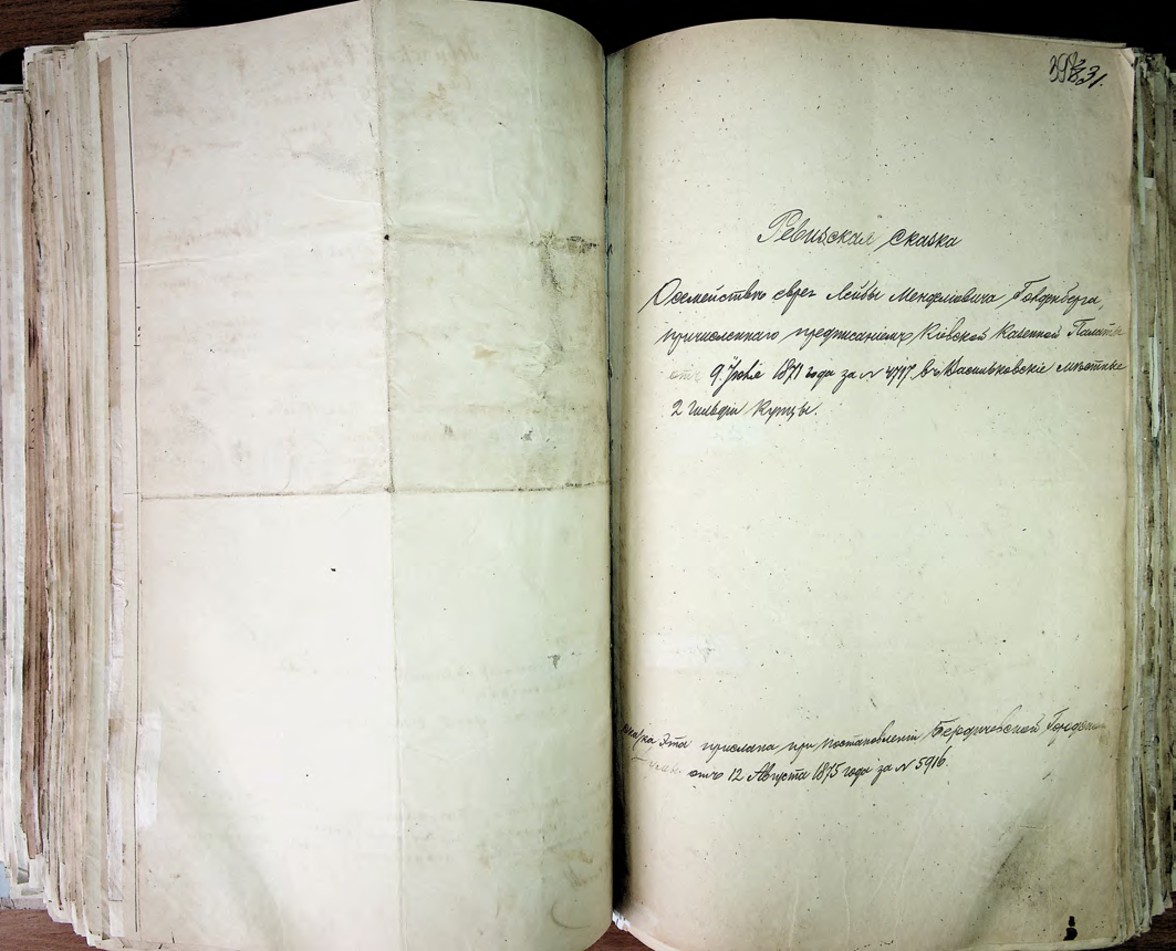 31.
Ревизская сказка
О семействѣ еврея Лейбы Менделіовича Голденберга,
причисленнаго предписаніемъ Кіевской Казенной Палаты
отъ 9. Іюня 1871 года за № 4717 въ Васильковскіе мѣстные
2 гильдіи Купцы.
сказка эта прислана при постановленіи Бердичевской Городской
отъ 12 Августа 1875 года за № 5916.